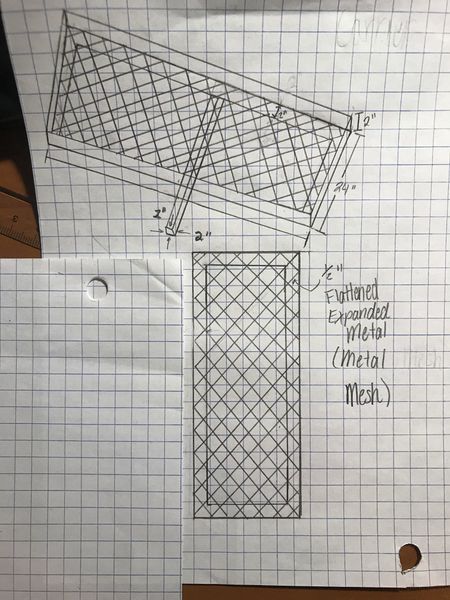 Carrier
1/2"
2"
24"
2"
2"
1/2"
Flattened
Expanded
Metal
(Metal
Mesh)